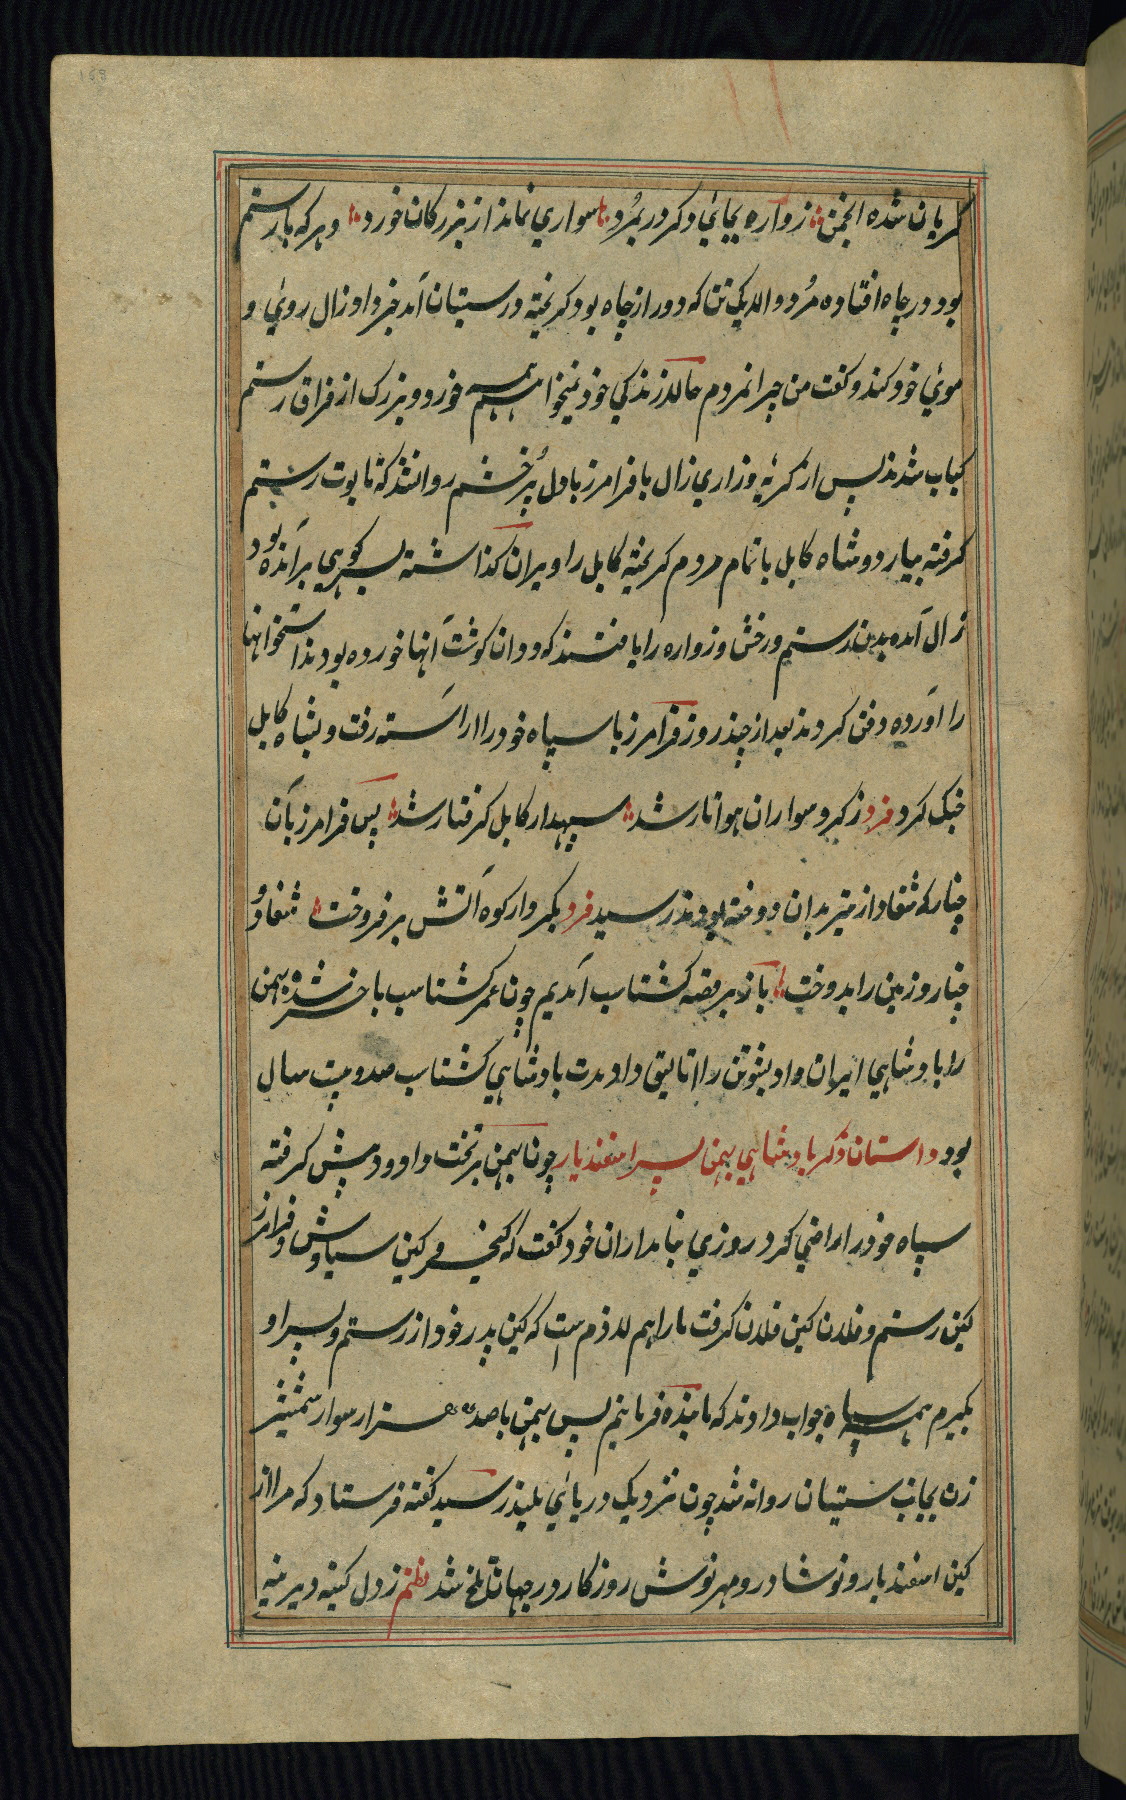 کریان شده انجمن زواره بجائی دکر در بمُرد سواری نماند از بزرکان خورد و هرکه با رستم
بود در چاه افتاده مُرد والا یک تن که دور از چاه بود کریخته در سیستان آمد خبر داد زال روئی و
موئی خود کند و کفت من چرا نمردم حالا زندکی خود نمیخواهم همه خورد و بزرک از فراق رستم
کباب شدند پس از کریه و زاری زال با فرامرز با دل پُر خشم روانند که تابوت رستم
کرفته بیارد و شاه کابل با تمام مردم کریخته کابل را ویران کذاشته بسر کوهی برآمده بود
زال آمده بدیدن رستم و رخش و زواره را یافتند که ددان کوشت آنها خورده بودند استخوانها
را آورده دفن کردند بعد از چند روز فرامرز با سپاه خود را آراسته رفت و بشاه کابل
جنک کرد فرد ز کرد سواران هوا تار شد سپهدار کابل کرفتار شد پس فرامرز بآن
چنار که شغاد از تیر بدان دوخته بودند رسید فرد بکردار کوه آتش برفروخت شغاد و
چنار و زمین را بدوخت باز بر قصه کشتاسب آمدیم چون عمر کشتاسب با خر شده بهمن
را بادشاهی ایران داد پشوتن را اتالیق داد مدت بادشاهی کشتاسب صد و بیست سال
بود داستان ذکر بادشاهی بهمن پسر اسفندیار چون بهمن بر تخت داد و دهش کرفته
سپاه خود را راضی کرد روزی بنامداران خود کفت که کیخسرو کین سیاوش و فرامرز
کین رستم و فلان کین فلان کرفت ما را هم لازم است که کین پدر خود از رستم و پسر او
بکیرم همه سپاه جواب دادند که ما بنده فرمانیم پس بهمن با صد هزار سوار شمشیر
زن بجانب سیستان روانه شد چون نزدیک دریائی هلیند رسید کفته فرستاد که مرا از
کین اسفندیار و نوشاد و مهرنوش روزکار در جهان تلخ شد نظم ز دل کینه دیرینه